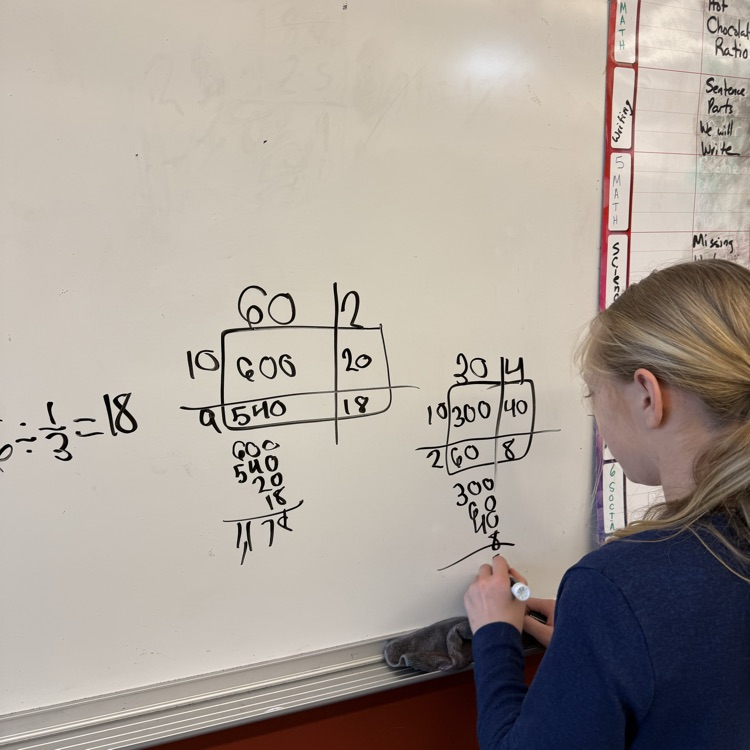 6 ÷ 1/3 = 18
60 2
10 600 20
9 540 18
600
540
20
18
1,178
30 4
10 300 40
2 60 8
300
60
40
8
MATH
Hot
Chocolat
Ratio
Writing
Sentence
Parts
We will
Write
5 MATH
Science
Missing
6 SOCIA